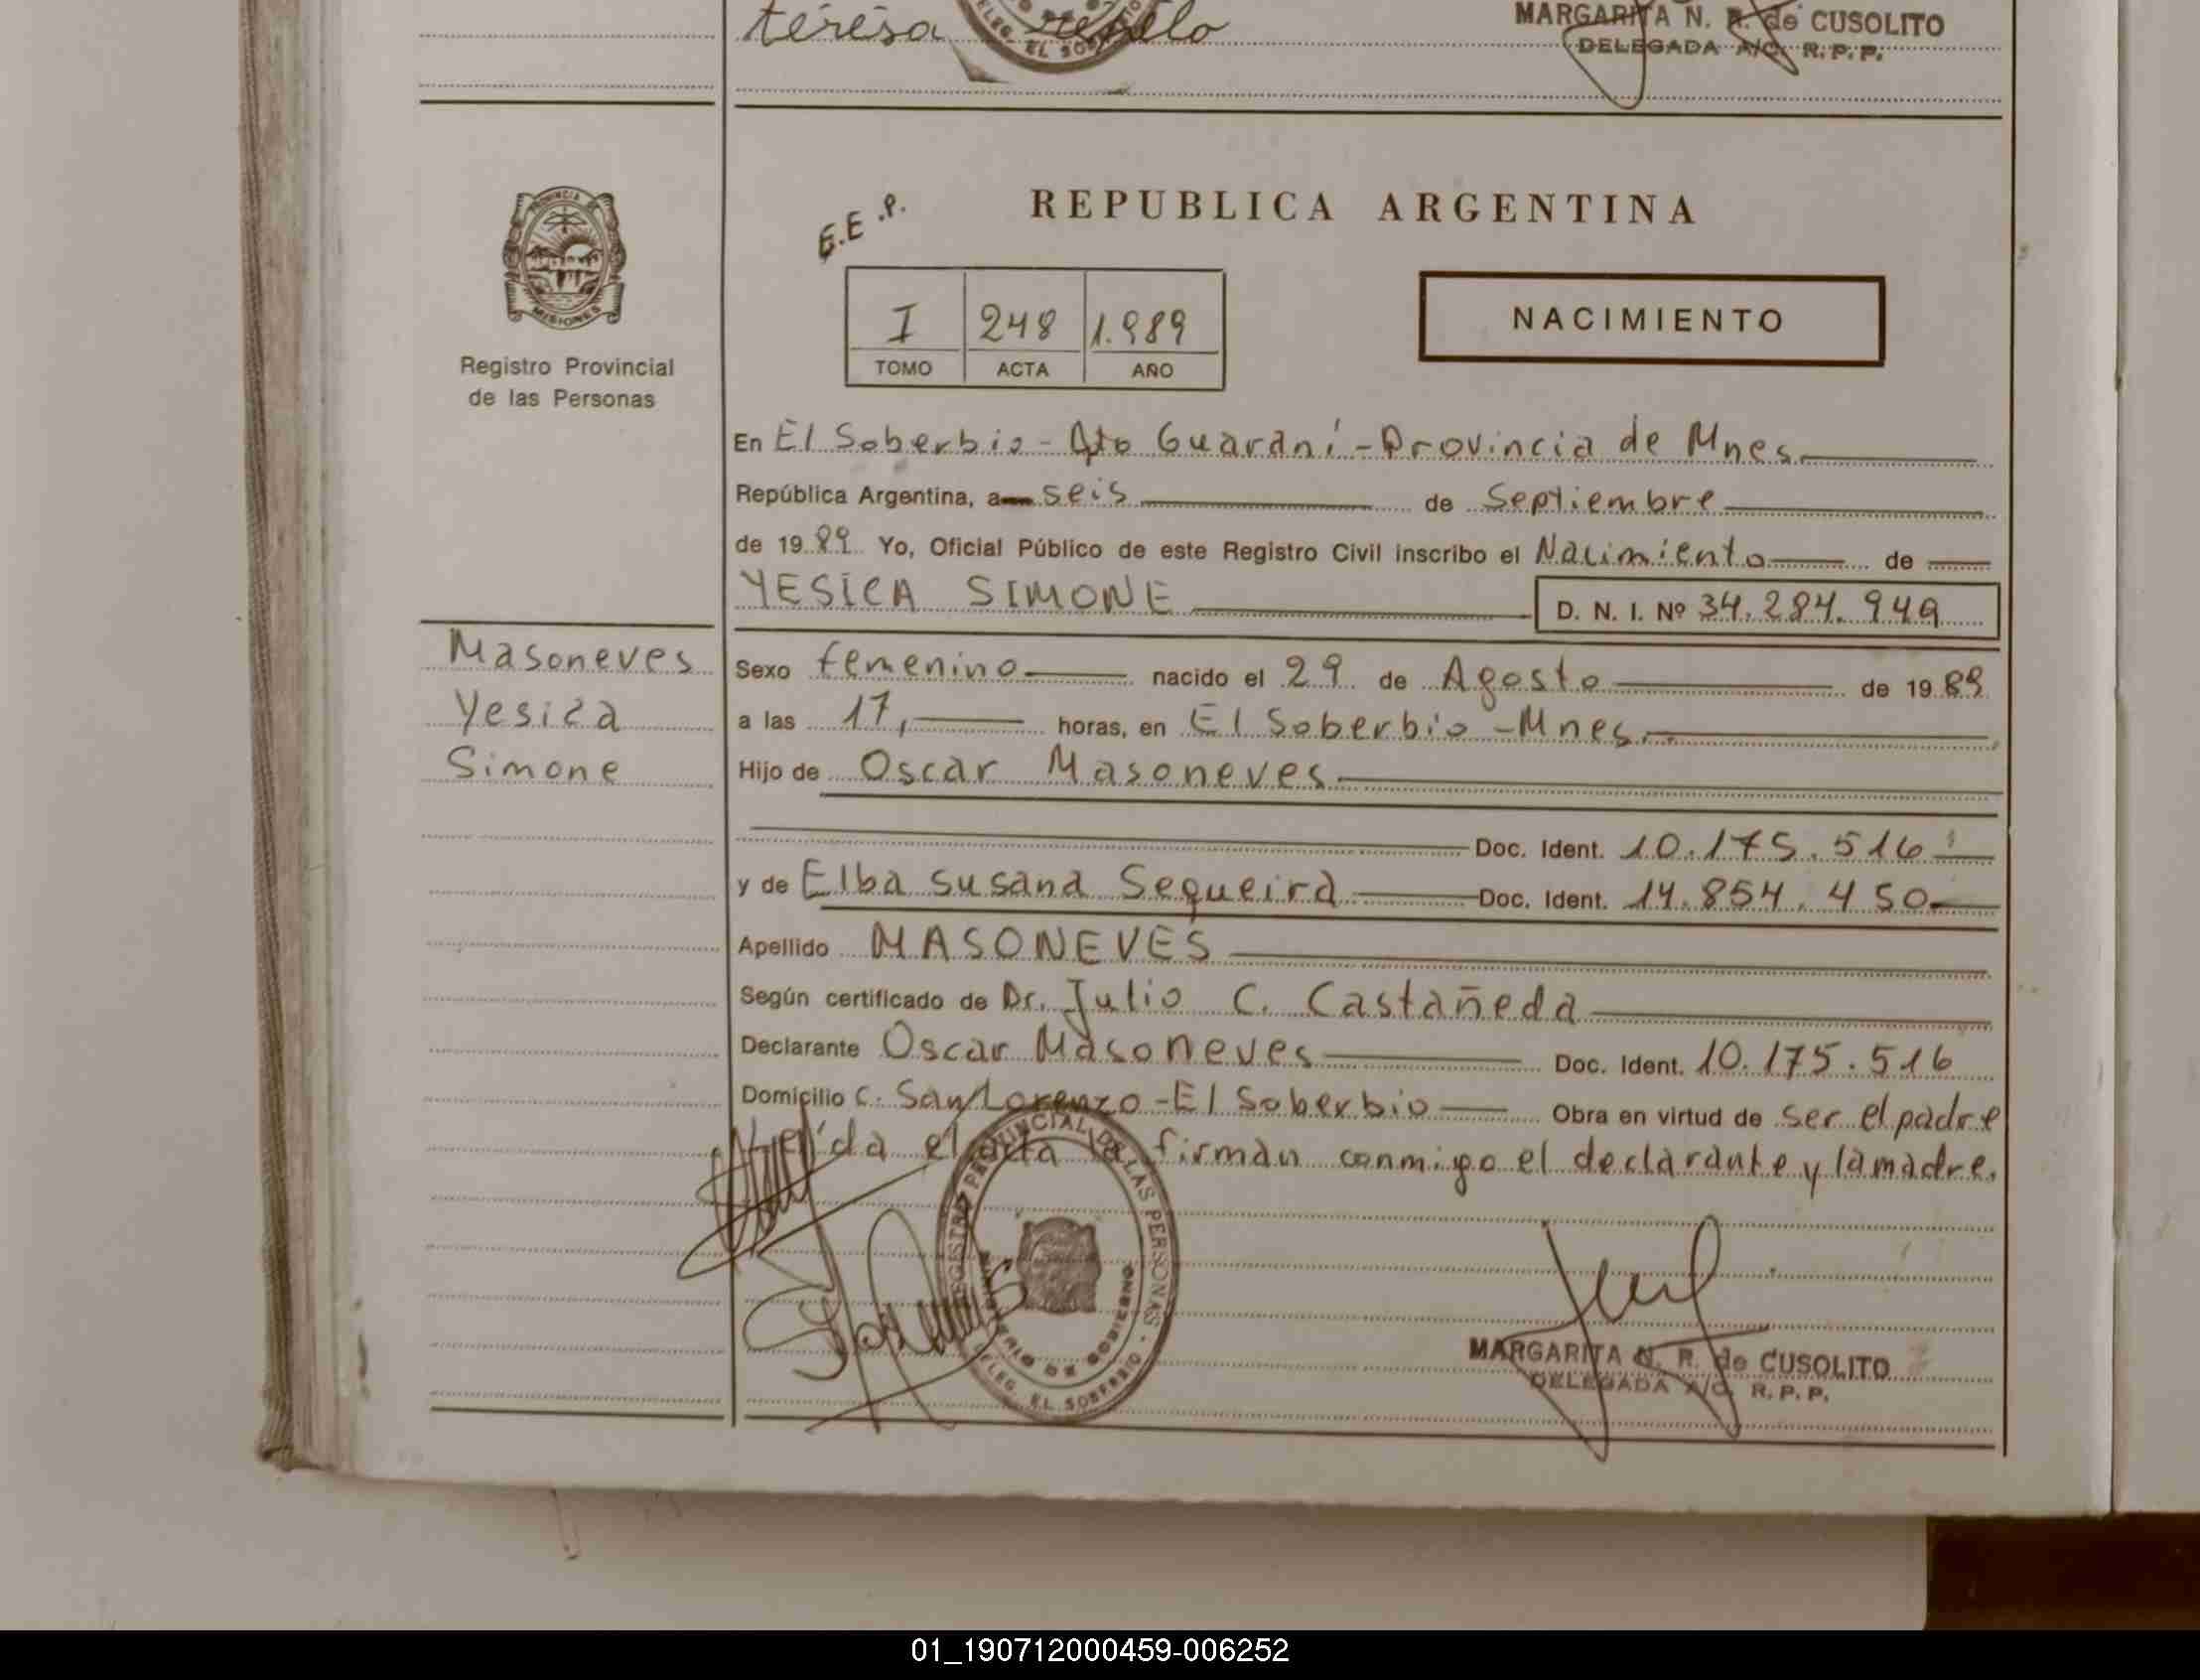 teresa
MARGARITA N. R. de CUSOLITO
DELEGADA A/C. R. P. P.
PROVINCIA DE
MISIONES
Registro Provincial
de las Personas
E.E.P.
REPUBLICA ARGENTINA
I 248 1.989
TOMO ACTA AÑO
NACIMIENTO
En El Soberbio - Dto Guaraní - Provincia de Mnes.
República Argentina, a seis de Septiembre
de 1989 Yo, Oficial Público de este Registro Civil inscribo el Nacimiento de
YESICA SIMONE D. N. I. Nº 34.284.949
Masoneves
Yesica
Simone
Sexo femenino nacido el 29 de Agosto de 1989
a las 17, horas, en El Soberbio - Mnes.
Hijo de Oscar Masoneves
Doc. Ident. 10.175.516
y de Elba Susana Sequeira Doc. Ident. 14.854.450
Apellido MASONEVES
Según certificado de Dr. Julio C. Castañeda
Declarante Oscar Masoneves Doc. Ident. 10.175.516
Domicilio C. San Lorenzo - El Soberbio Obra en virtud de ser el padre
Leída el acta la firman conmigo el declarante y la madre.
REGISTRO PROVINCIAL DE LAS PERSONAS
MINISTERIO DE GOBIERNO
DELEG. EL SOBERBIO
MARGARITA N. R. de CUSOLITO
DELEGADA A/C. R. P. P.
01_190712000459-006252